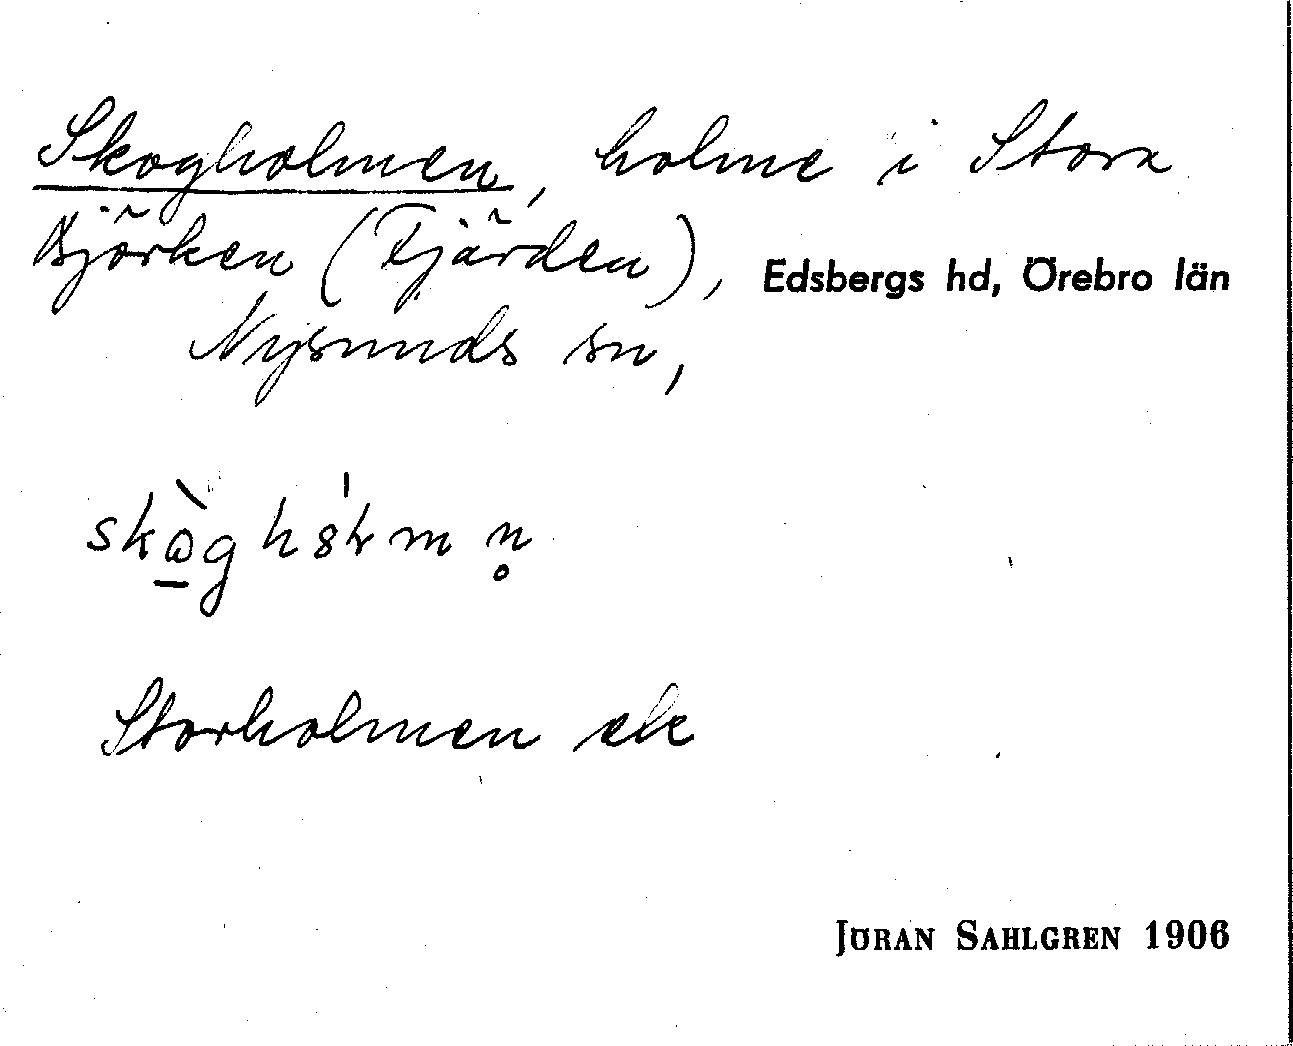 Skogholmen, holme i Stora
Björken (Fjärden), Edsbergs hd, Örebro län
Nysunds sn,
Storholmen ek
JÖRAN SAHLGREN 1906